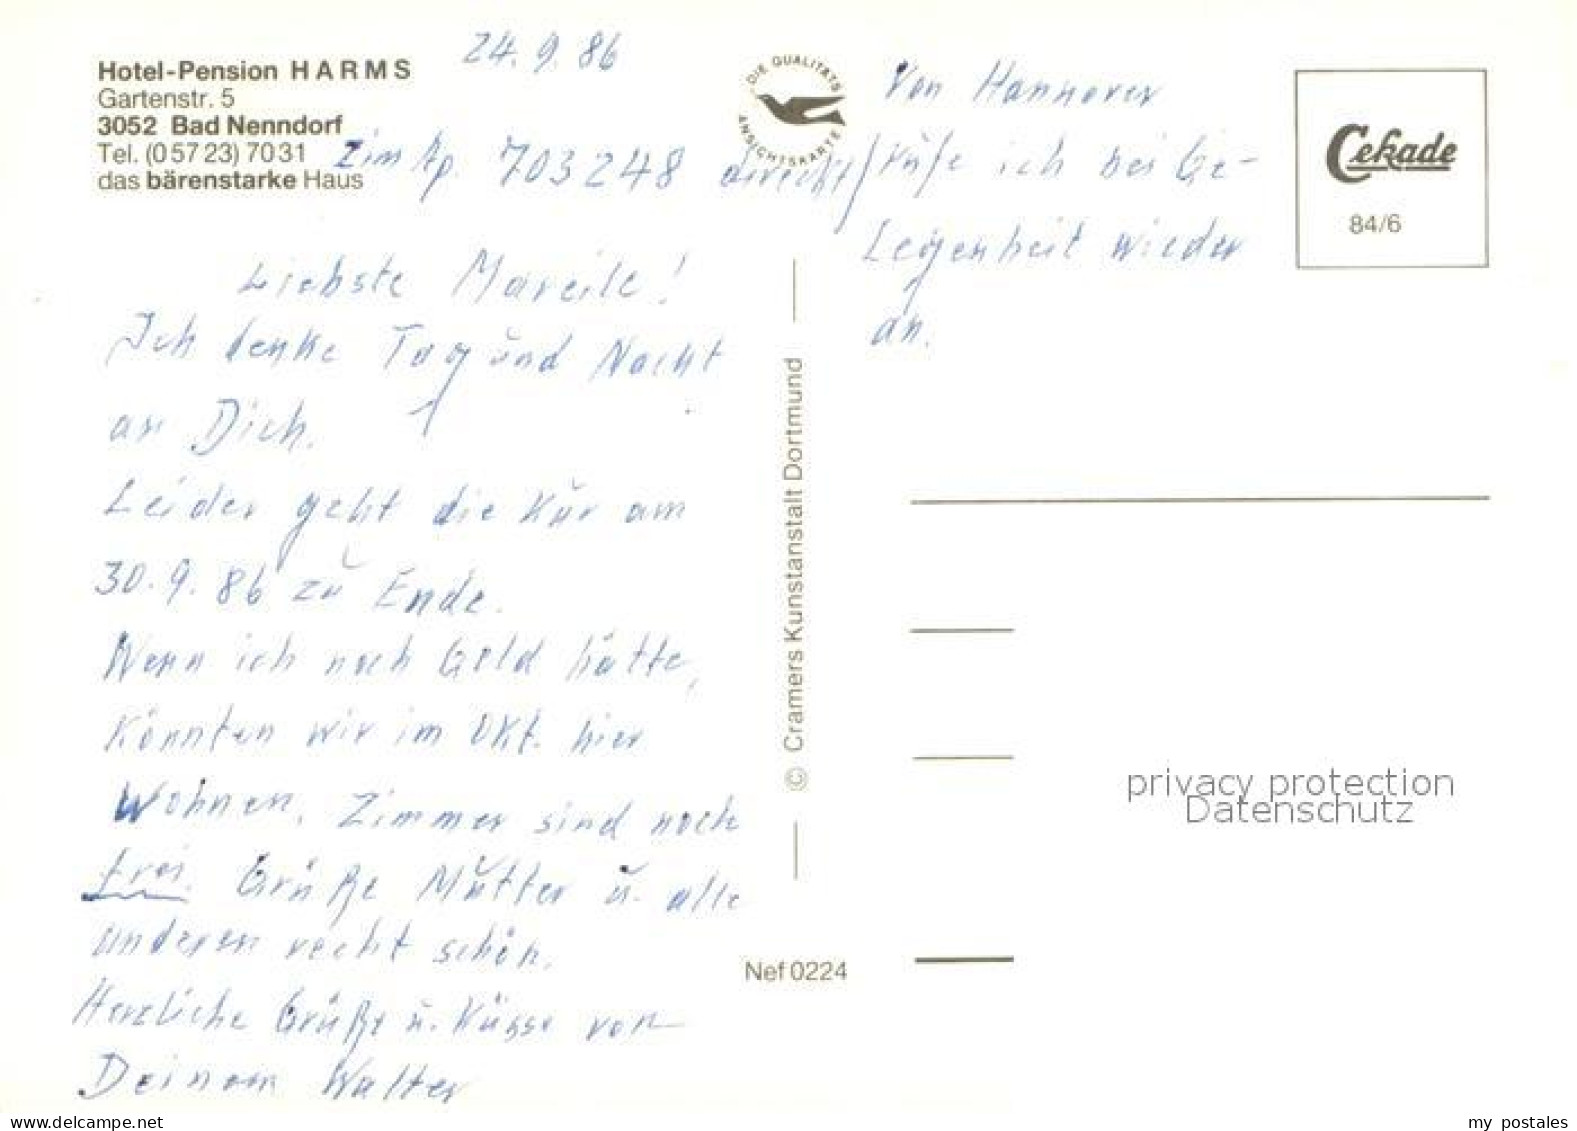 24.9.86
Hotel-Pension HARMS
Gartenstr. 5
3052 Bad Nenndorf
Tel. (05723) 7031
das bärenstarke Haus
Zim Ap. 703248 direcht/
Liebste Mareile!
Ich denke Tag und Nacht
an Dich.
Leider geht die Kur am
30.9.86 zu Ende.
Wenn ich noch Geld hätte,
könnten wir im Okt. hier
Wohnen. Zimmer sind noch
frei. Grüße Mutter u. alle
anderen recht schön.
Herzliche Grüße u. Küsse von
Deinem Walter
DIE QUALITÄTS
ANSICHTSKARTE
© Cramers Kunstanstalt Dortmund
Nef 0224
Von Hannover
rufe ich bei Ge-
legenheit wieder
an.
Cekade
84/6
privacy protection
Datenschutz
my postales